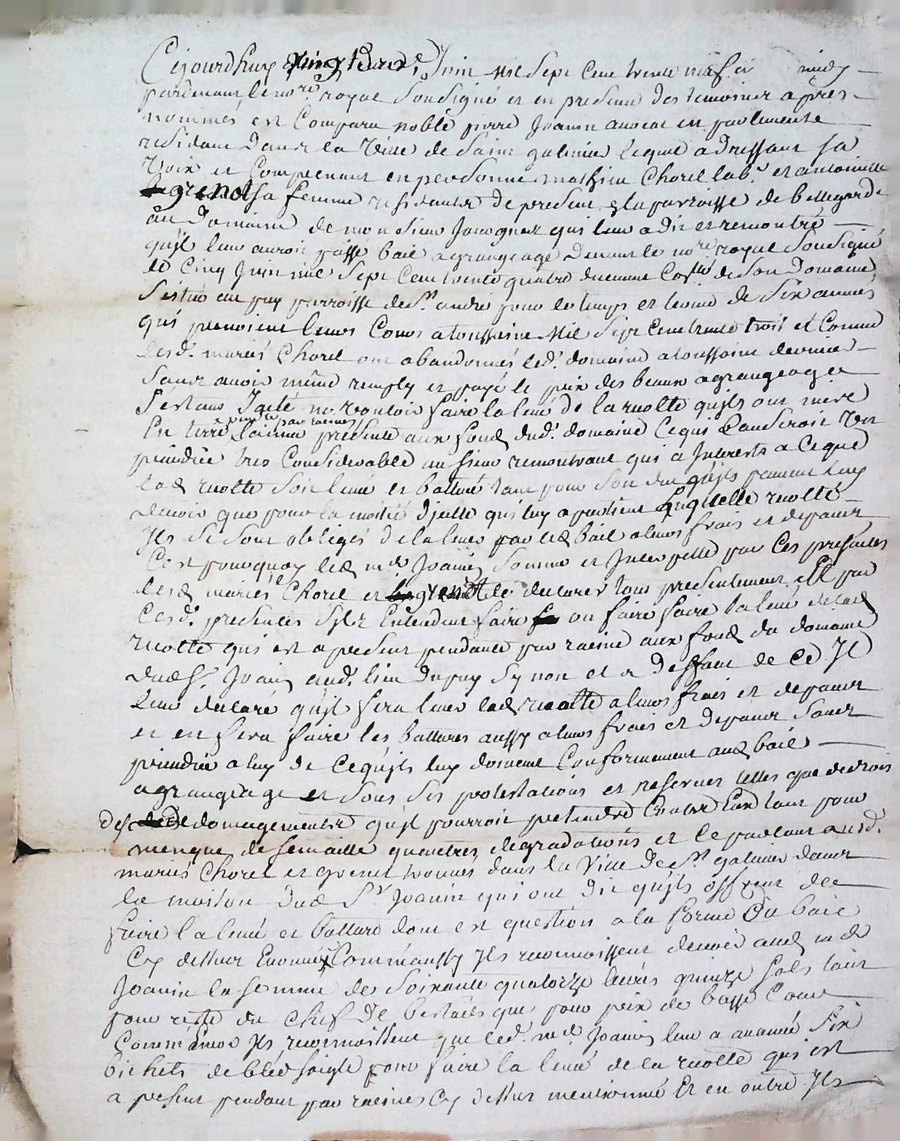 Cejourdhuy vingt deux.e Juin mil sept cent trente midy
pardevant le no.re royal soussigné et en presence des temoins apres
nommés est comparu noble pierre Joanin avocat en parlement
residant dans la ville de saint galmier lequel adressant sa
voix et comprenant en personne mathieu Chorel lab.r et antoinette
grend sa femme residants de present a la parroisse de bellegarde
au domaine de monsieur Jacognet qui leur a dit et remontré
quil leur auroit passe bail a grangeage devant le no.re royal soussigné
le cinq Juin mil sept cent trente quatre de son domaine
situé au puy parroisse de st andré pour le temps et terme de six années
qui prenoient leurs cours a toussaint mil sept cent trente trois et comme
lesd. mariés Chorel ont abandonnés led. domaine a toussaint dernier
sans avoir même remply et payé le prix des beaux a grangeage
pretans faire la levé de la recolte quils ont mere
en terre lannee presente aux fond dud. domaine ce qui causeroit un
prejudice tres considerable au sieur remontrant qui a interets a ceque
lad recolte soit levé et batture tant pour son du quils peuvent luy
devoir que pour la moitié dicelle qui luy apartient laquelle recolte
Ils se sont obligés de la lever par led bail a leurs frais et depans
Cest pourquoy led m.e Joanin somme et interpelle par ces presentes
lesd mariés Chorel et grend de declarer tous presentement et par
cesd. presentes sils entendent faire ou faire faire la levé de lad
recolte qui est a present pendante par racine aux fond du domaine
dud s. Joanin aud. lieu du puy synon et a deffaut de ce Il
leur declare quil fera lever lad recolte a leurs frais et depans
et en fera faire les battures aussy a leurs frais et depans sans
prejudice a luy de ce quils luy doivent conformement aud bail
a grangeage et sous ses protestations et reserves telles que de droit
des domagements quil pourroit pretendre contre eux tant pour
menque de semaille degradations et ce parlant ausd.
mariés Chorel et grend trouvés dans la ville de st galmier dans
la maison dud s.r Joanin qui ont dit quils offrent de
faire la levé et batture dont est question a la forme du bail
cy dessus enoncé comme aussy ils reconnoissent devoir aud m.e
Joanin la somme de soixante quatorze livres quinze sols tant
pour reste du chef de bestiaes que pour prix de basse cour
comme aussy ils reconnoissent que led. m.e Joanin leur a avancé six
bichets de bled soigle pour faire la levé de la recolte qui est
a present pendant par racines cy dessus mentionné et en outre Ils